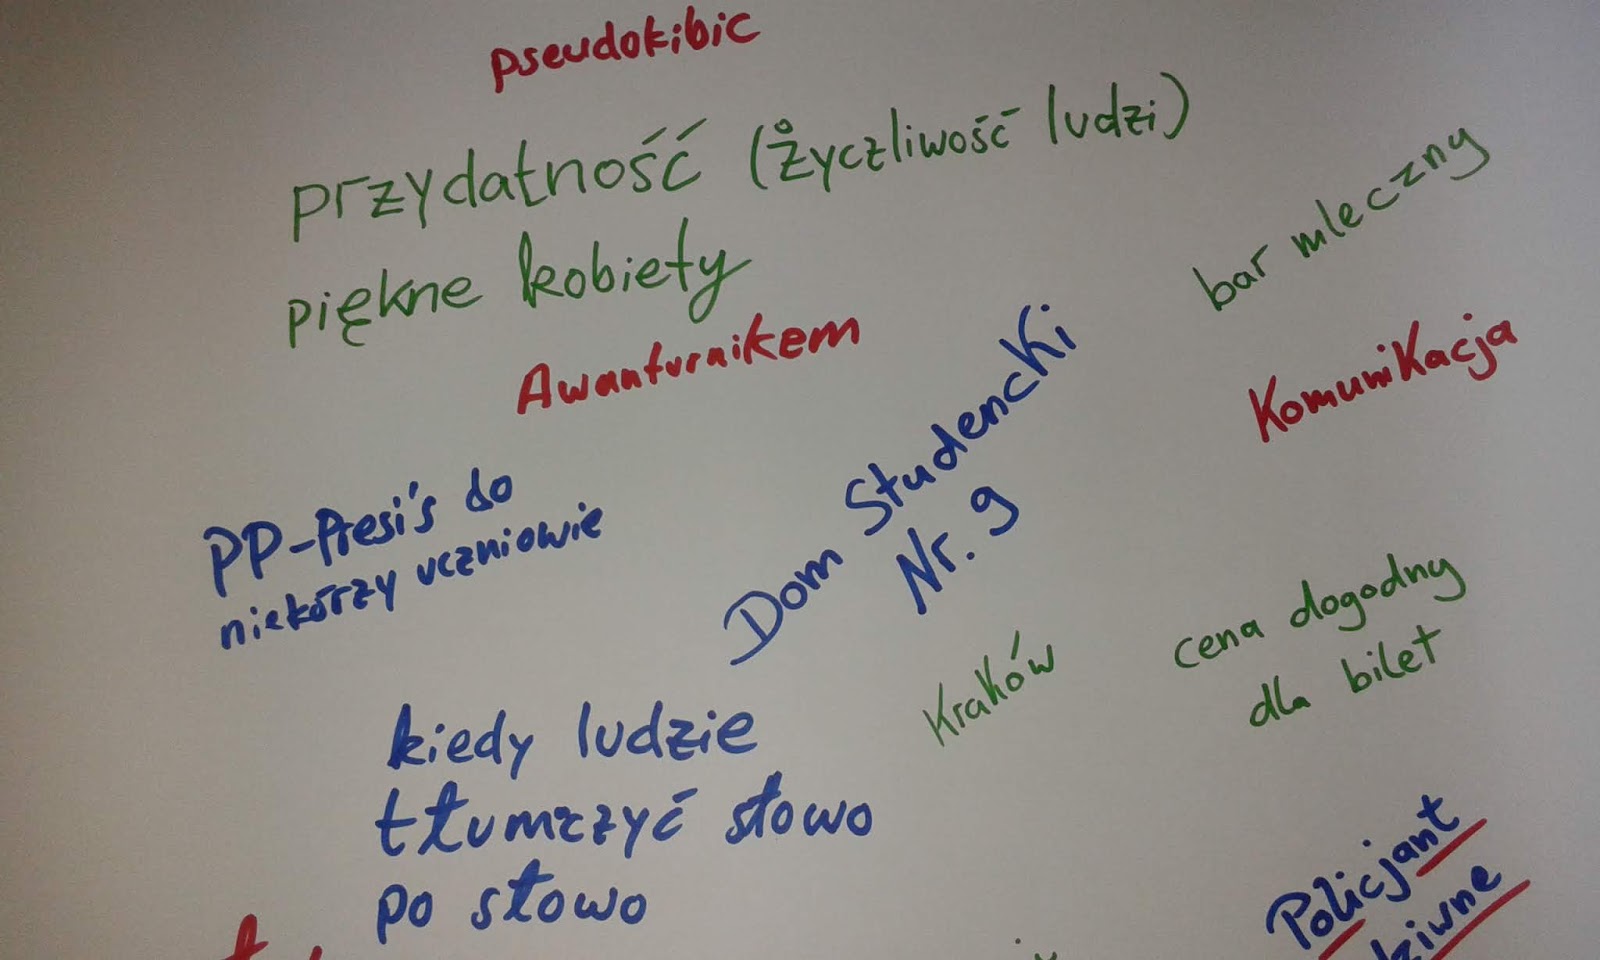 pseudokibic
przydatność (życzliwość ludzi)
piękne kobiety
bar mleczny
Awanturnikem
Komunikacja
Dom Studencki
Nr. 9
PP-Presi's do
niekórzy uczniowie
cena dogodny
dla bilet
Kraków
kiedy ludzie
tłumrzyć słowo
po słowo
Policjant